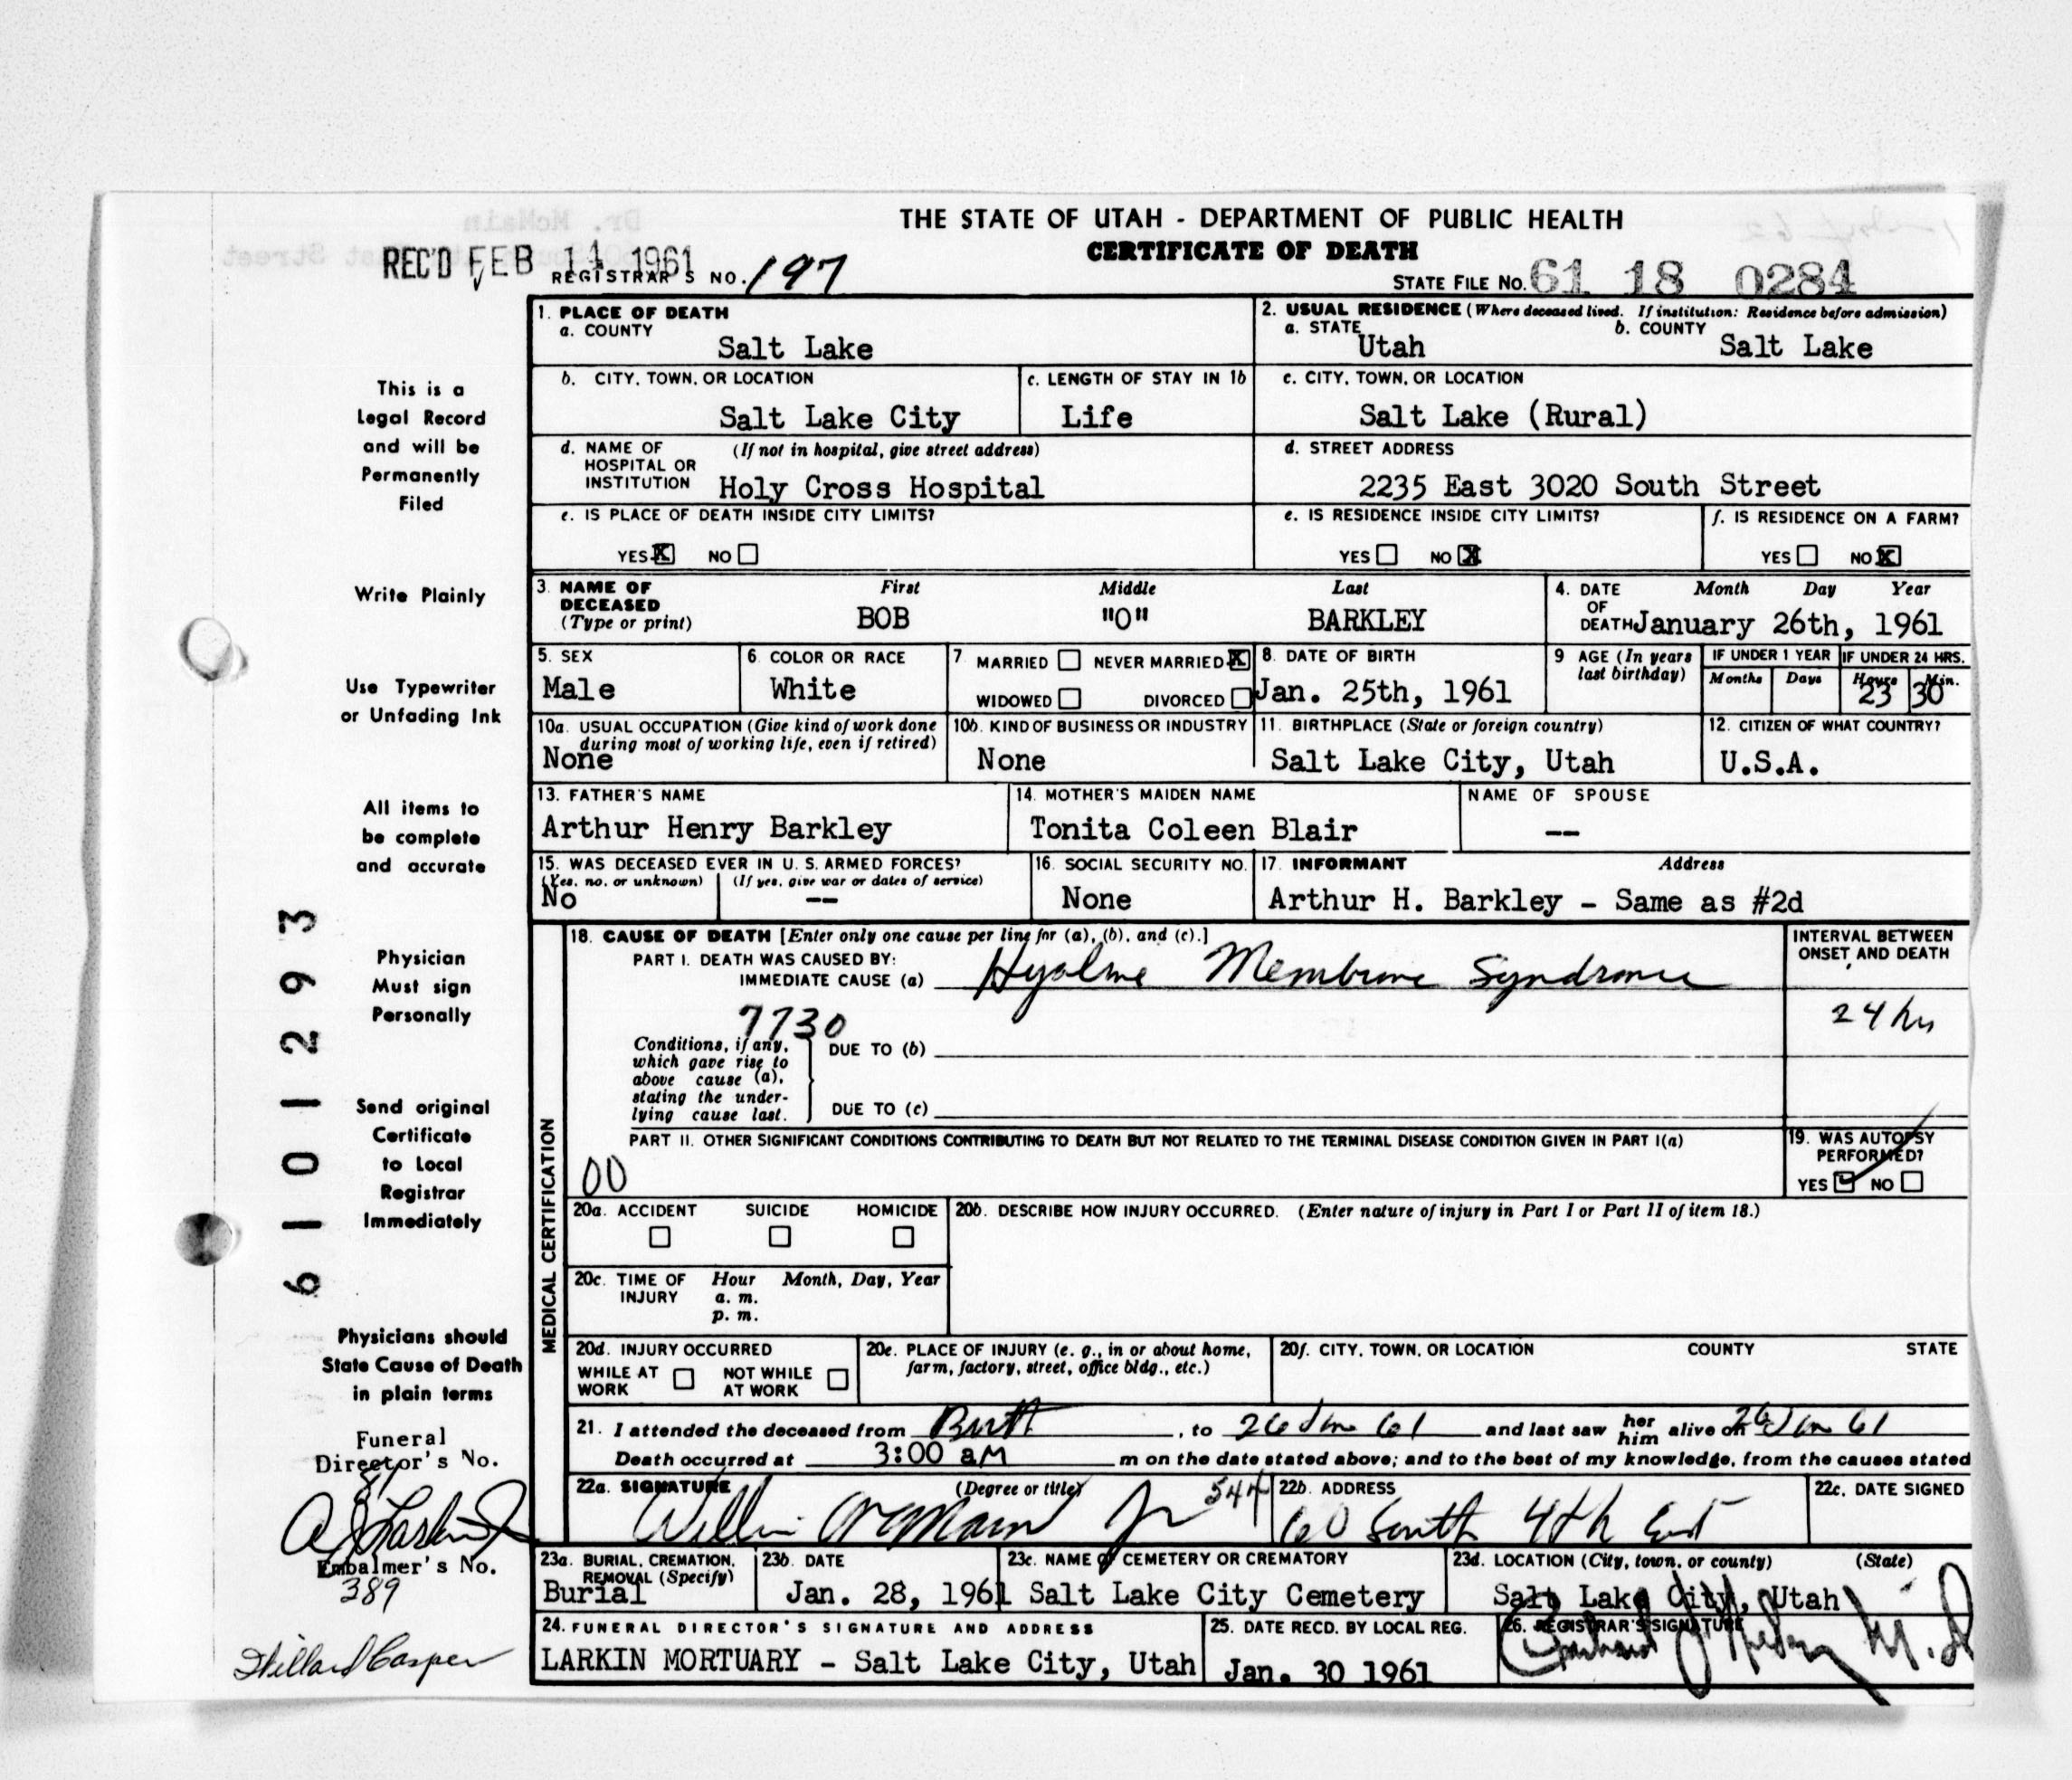 THE STATE OF UTAH - DEPARTMENT OF PUBLIC HEALTH
CERTIFICATE OF DEATH
REC'D FEB 14 1961 REGISTRAR'S NO. 197
STATE FILE NO. 61 18 0284
1. PLACE OF DEATH
a. COUNTY
Salt Lake
2. USUAL RESIDENCE (Where deceased lived. If institution: Residence before admission)
a. STATE Utah b. COUNTY Salt Lake
b. CITY, TOWN, OR LOCATION
Salt Lake City
c. LENGTH OF STAY IN 1b
Life
c. CITY, TOWN, OR LOCATION
Salt Lake (Rural)
d. NAME OF HOSPITAL OR INSTITUTION (If not in hospital, give street address)
Holy Cross Hospital
d. STREET ADDRESS
2235 East 3020 South Street
e. IS PLACE OF DEATH INSIDE CITY LIMITS?
YES X NO
e. IS RESIDENCE INSIDE CITY LIMITS?
YES NO X
f. IS RESIDENCE ON A FARM?
YES NO X
3. NAME OF DECEASED (Type or print)
First Middle Last
BOB "O" BARKLEY
4. DATE OF DEATH Month Day Year
January 26th, 1961
5. SEX
Male
6. COLOR OR RACE
White
7. MARRIED NEVER MARRIED X
WIDOWED DIVORCED
8. DATE OF BIRTH
Jan. 25th, 1961
9 AGE (In years last birthday)
IF UNDER 1 YEAR IF UNDER 24 HRS.
Months Days Hours Min.
23 30
10a. USUAL OCCUPATION (Give kind of work done during most of working life, even if retired)
None
10b. KIND OF BUSINESS OR INDUSTRY
None
11. BIRTHPLACE (State or foreign country)
Salt Lake City, Utah
12. CITIZEN OF WHAT COUNTRY?
U.S.A.
13. FATHER'S NAME
Arthur Henry Barkley
14. MOTHER'S MAIDEN NAME
Tonita Coleen Blair
NAME OF SPOUSE
--
15. WAS DECEASED EVER IN U. S. ARMED FORCES?
(Yes, no, or unknown) (If yes, give war or dates of service)
No --
16. SOCIAL SECURITY NO.
None
17. INFORMANT Address
Arthur H. Barkley - Same as #2d
MEDICAL CERTIFICATION
18. CAUSE OF DEATH [Enter only one cause per line for (a), (b), and (c).]
PART I. DEATH WAS CAUSED BY:
IMMEDIATE CAUSE (a) Hyaline Membrane Syndrome
INTERVAL BETWEEN ONSET AND DEATH
24 hrs
7730
Conditions, if any, which gave rise to above cause (a), stating the underlying cause last.
DUE TO (b)
DUE TO (c)
PART II. OTHER SIGNIFICANT CONDITIONS CONTRIBUTING TO DEATH BUT NOT RELATED TO THE TERMINAL DISEASE CONDITION GIVEN IN PART I(a)
00
19. WAS AUTOPSY PERFORMED?
YES NO
20a. ACCIDENT SUICIDE HOMICIDE
20b. DESCRIBE HOW INJURY OCCURRED. (Enter nature of injury in Part I or Part II of item 18.)
20c. TIME OF INJURY Hour Month, Day, Year
a. m.
p. m.
20d. INJURY OCCURRED
WHILE AT WORK NOT WHILE AT WORK
20e. PLACE OF INJURY (e. g., in or about home, farm, factory, street, office bldg., etc.)
20f. CITY, TOWN, OR LOCATION COUNTY STATE
21. I attended the deceased from Birth, to 26 Jan 61 and last saw her him alive on 26 Jan 61
Death occurred at 3:00 aM m on the date stated above; and to the best of my knowledge, from the causes stated
22a. SIGNATURE (Degree or title)
Jr 544
22b. ADDRESS
60 South 4th East
22c. DATE SIGNED
23a. BURIAL, CREMATION, REMOVAL (Specify)
Burial
23b. DATE
Jan. 28, 1961
23c. NAME OF CEMETERY OR CREMATORY
Salt Lake City Cemetery
23d. LOCATION (City, town, or county) (State)
Salt Lake City, Utah
24. FUNERAL DIRECTOR'S SIGNATURE AND ADDRESS
LARKIN MORTUARY - Salt Lake City, Utah
25. DATE RECD. BY LOCAL REG.
Jan. 30 1961
26. REGISTRAR'S SIGNATURE
This is a
Legal Record
and will be
Permanently
Filed
Write Plainly
Use Typewriter
or Unfading Ink
All items to
be complete
and accurate
Physician
Must sign
Personally
Send original
Certificate
to Local
Registrar
Immediately
Physicians should
State Cause of Death
in plain terms
Funeral
Director's No.
81
Embalmer's No.
389
Willard Casper
6101293
Dr. McMain